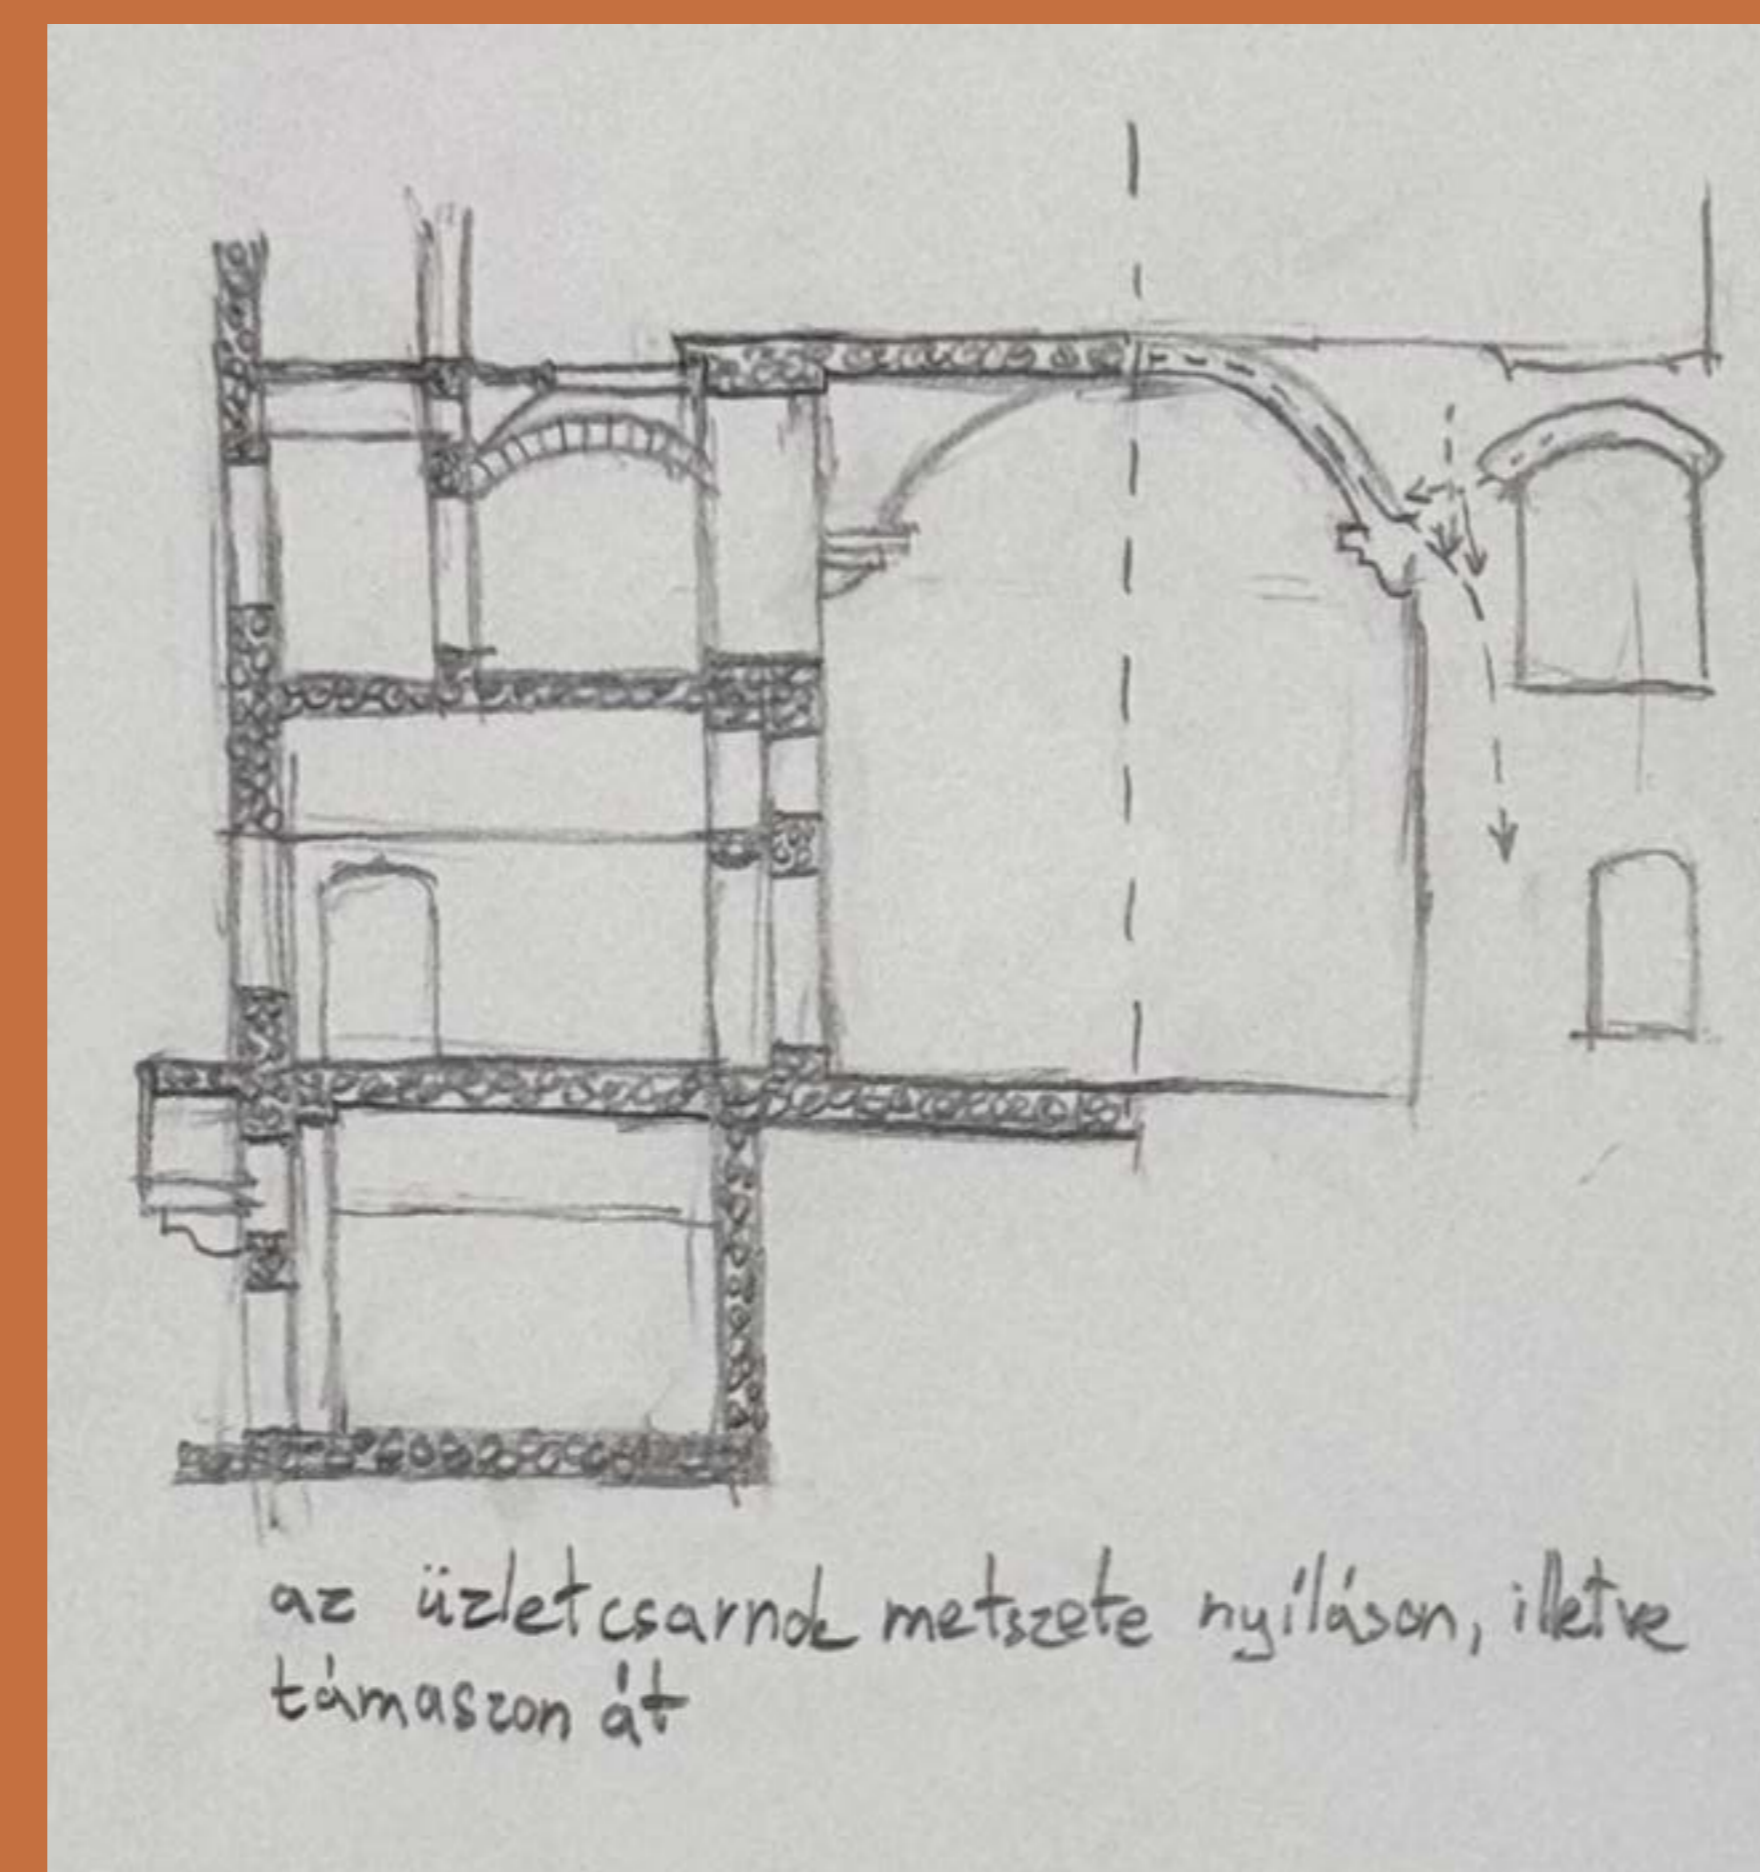 az üzletcsarnok metszete nyíláson, illetve
támaszon át